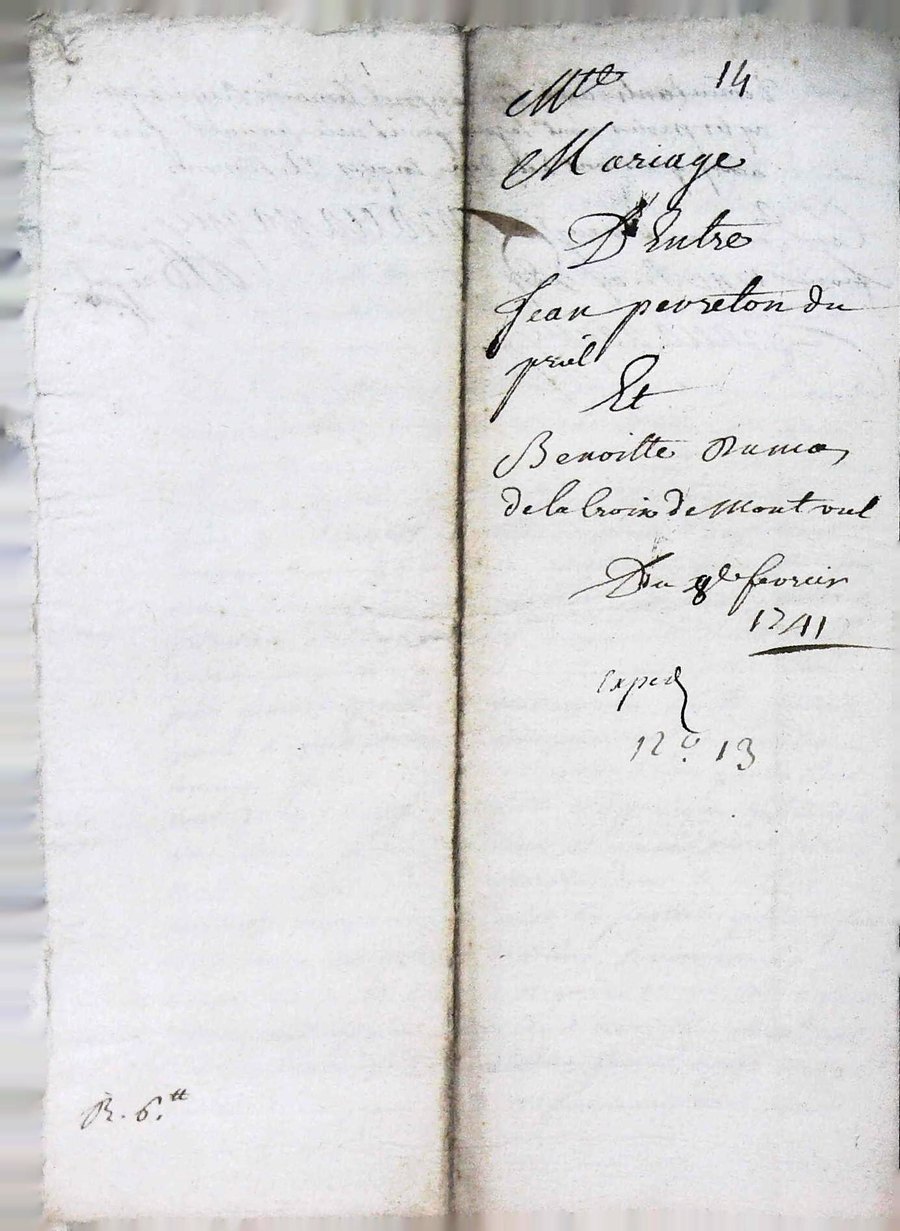 14
Mte
Mariage
D'Entre
Jean peureton du
priel
Et
Benoitte Dumas
de la Croix de Montviel
Du 8e fevrier
1741
Exped
12 13
R. 6.tt